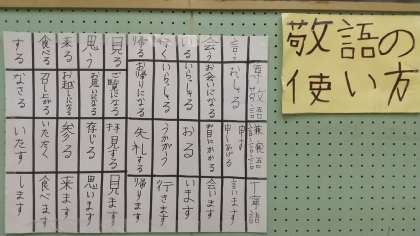 敬語の
使い方
尊敬語 謙譲語 丁寧語
言う おっしゃる 申す 申し上げる 言います
会う お会いになる お目にかかる 会います
いらっしゃる おる います
いらっしゃる うかがう 行きます
帰る お帰りになる 失礼する 帰ります
見る ご覧になる 拝見する 見ます
思う お思いになる 存じる 思います
来る お越しになる 参る 来ます
食べる 召し上がる いただく 食べます
する なさる いたす します